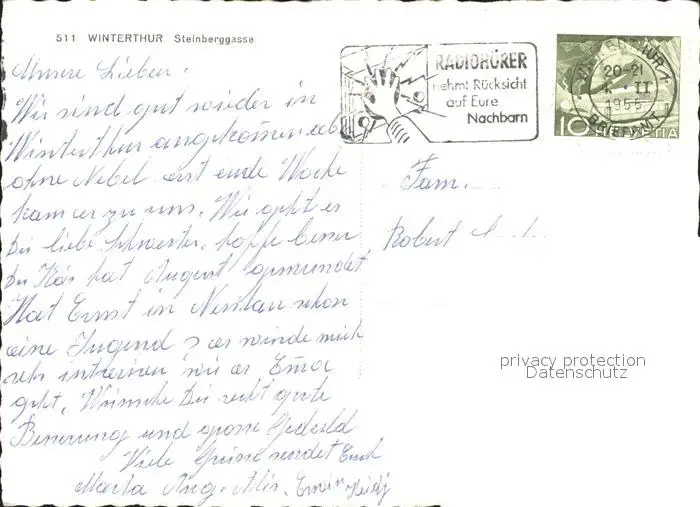 511 WINTERTHUR Steinberggasse
Unsere Lieben.
Wir sind gut wieder in
Winterthur angekommen
ohne Nebel erst ende Woche
kam er zu uns. Wie geht es
Dir liebe Schwester, hoffe besser
Der Käs hat August gemundet
Hat Ernst in Nesslau schon
eine Jugend ? es würde mich
sehr wie es Emma
geht. Wünsche Dir recht gute
Besserung und grosse Geduld
Viele Grüsse sendet Euch
Martha Aug. Erwin Heidj
RADIOHÖRER
nehmt Rücksicht
auf Eure
Nachbarn
WINTERTHUR 1
20-21
4. II
1955
BRIEFAMT
10 HELVETIA
Fam.
Robert
privacy protection
Datenschutz